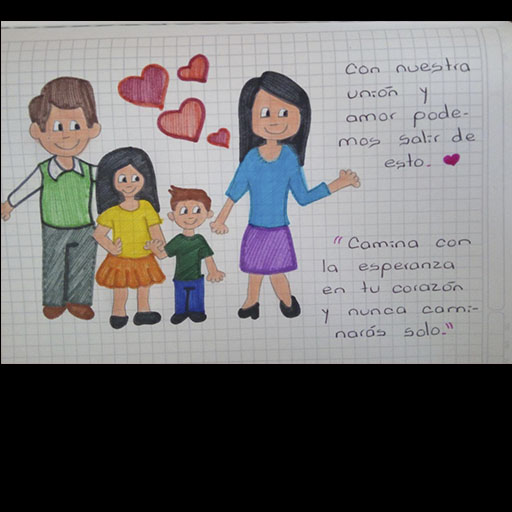 Con nuestra
unión y
amor pode-
mos salir de
esto.
"Camina con
la esperanza
en tu corazón
y nunca cami-
narás solo."